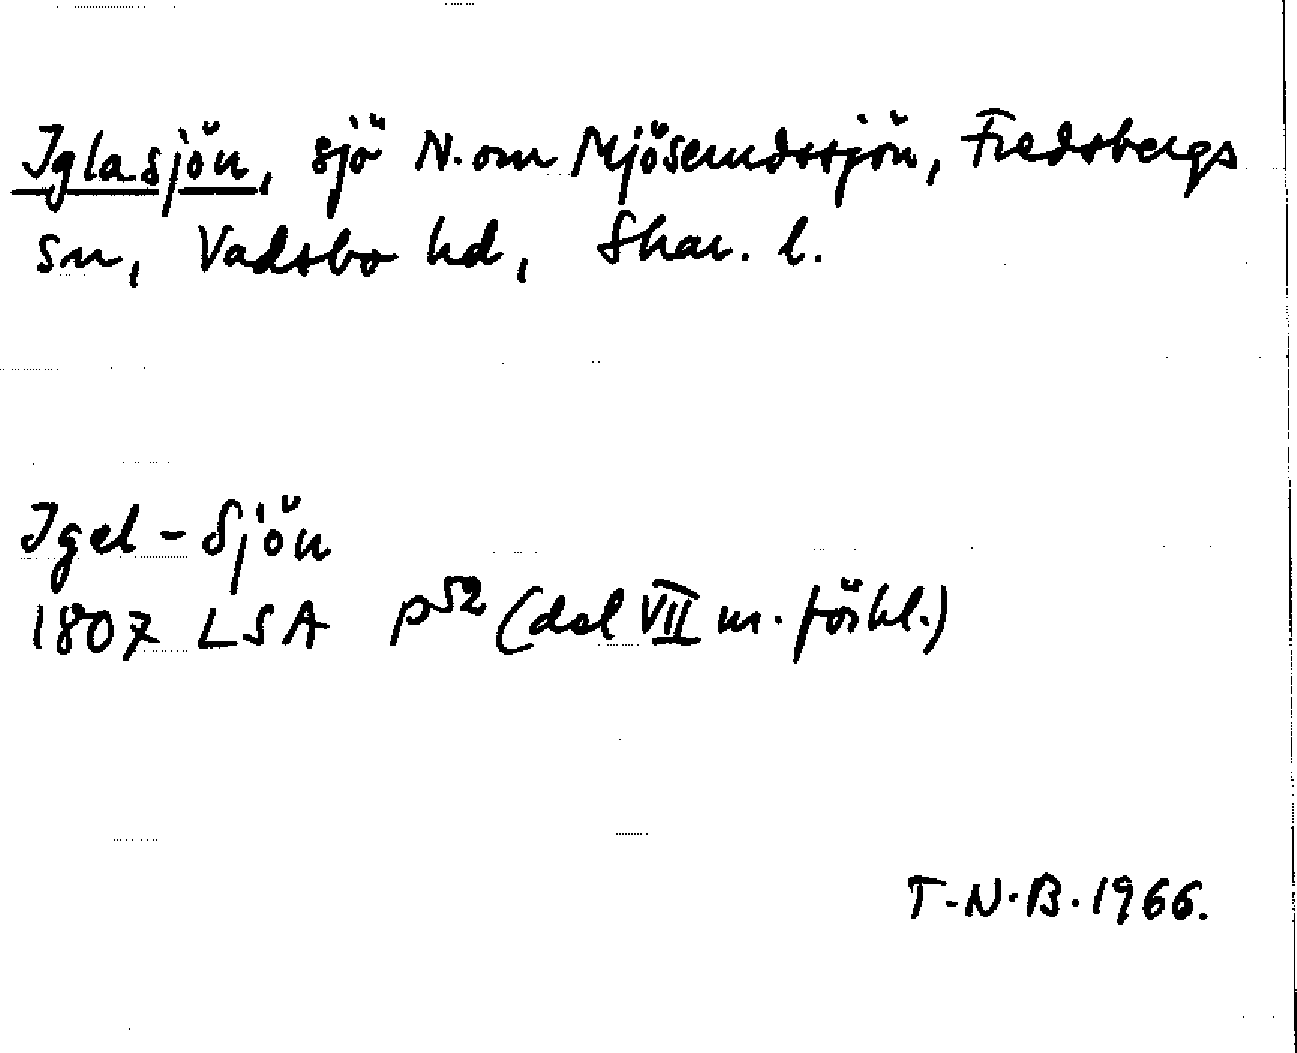 Iglasjön, sjö N. om Mjösemdssjön, Fredsbergs
sn, Vadsbo hd, Skar. l.
Igel - Sjön
1807 LSA P52 (del VII m. förkl.)
T-N.B. 1966.